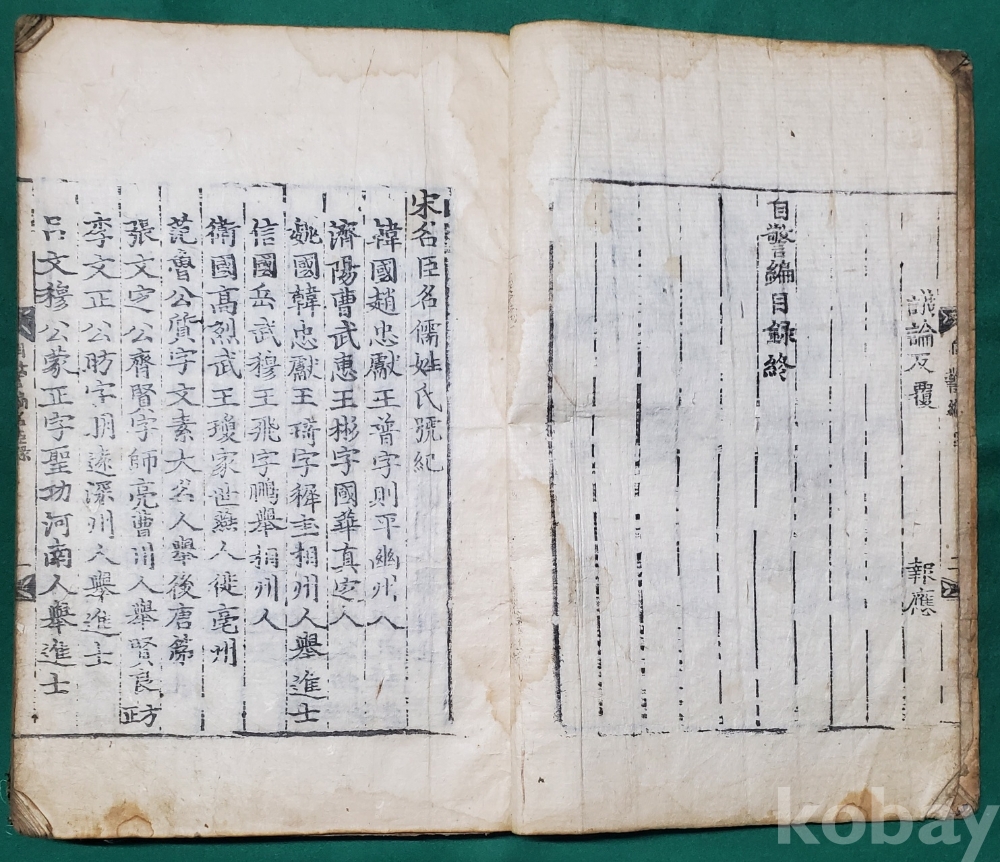 議論反覆 報應
自警編目錄終
宋名臣名儒姓氏號紀
韓國趙忠獻王普字則平幽州人
濟陽曹武惠王彬字國華真定人
魏國韓忠獻王琦字稚圭相州人舉進士
信國岳武穆王飛字鵬舉相州人
衛國高烈武王瓊家世燕人徙亳州
范魯公質字文素大名人舉後唐第
張文定公齊賢字師亮曹州人舉賢良正方
李文正公昉字明遠深州人舉進士
呂文穆公蒙正字聖功河南人舉進士
kobay